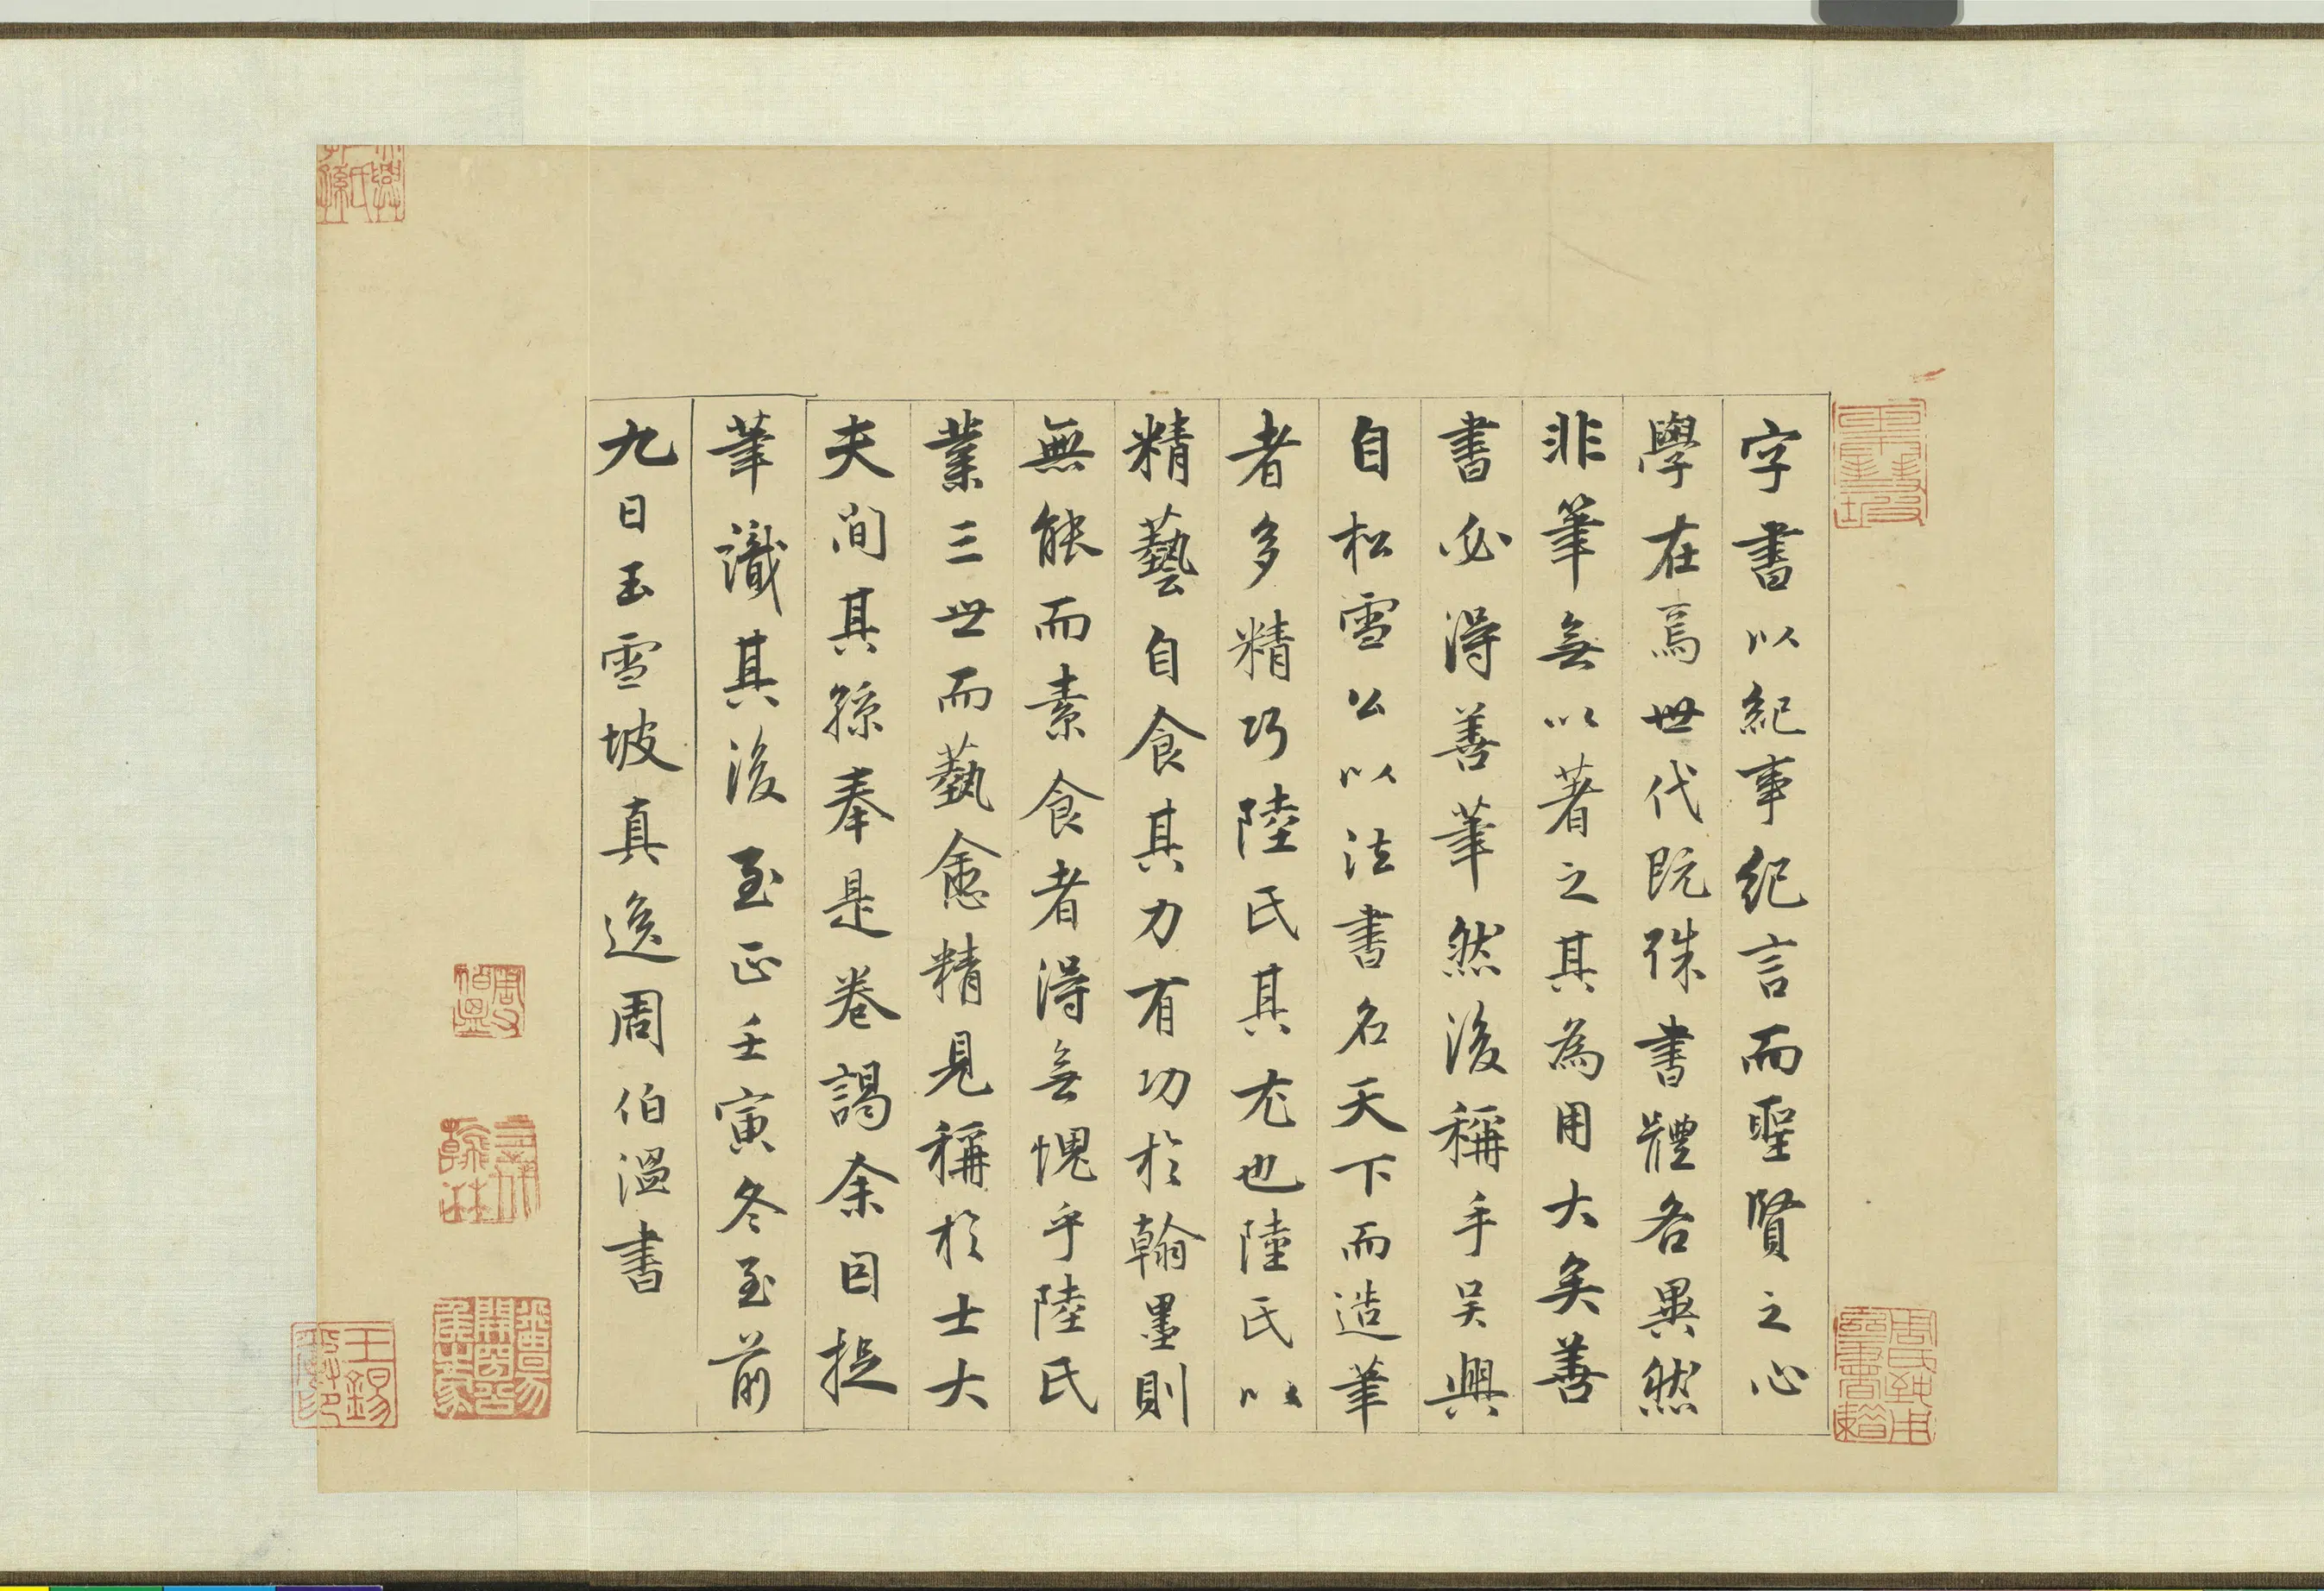 字書以紀事紀言而聖賢之心
學在焉世代既殊書體各異然
非筆無以著之其為用大矣善
書必得善筆然後稱手吳興
自松雪公以法書名天下而造筆
者多精巧陸氏其尤也陸氏以
精藝自食其力有功於翰墨則
無能而素食者得無愧乎陸氏
業三世而藝愈精見稱於士大
夫間其孫奉是卷謁余因提
筆識其後至正壬寅冬至前
九日玉雪坡真逸周伯溫書
周氏伯溫
王錫